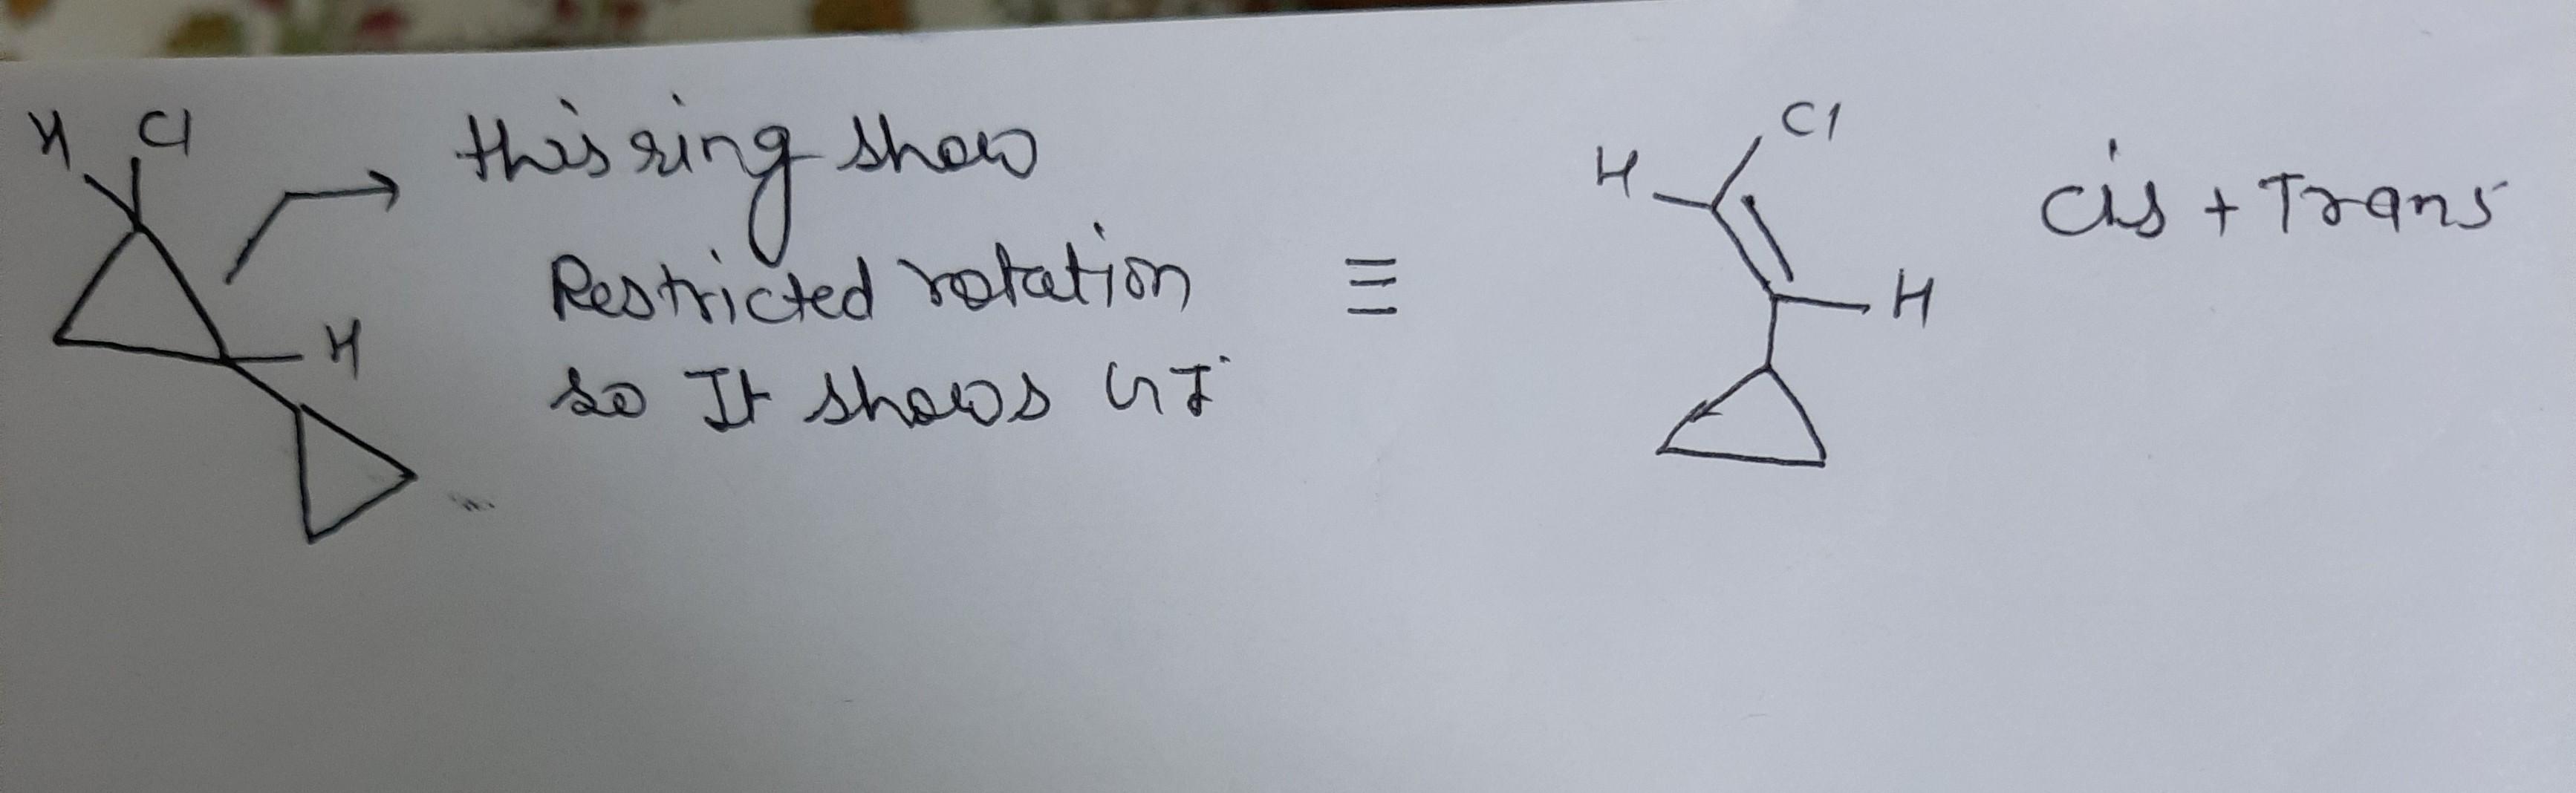 H Cl
H
this ring show
Restricted rotation
so It shows GI
≡
Cl
H
H
cis + Trans